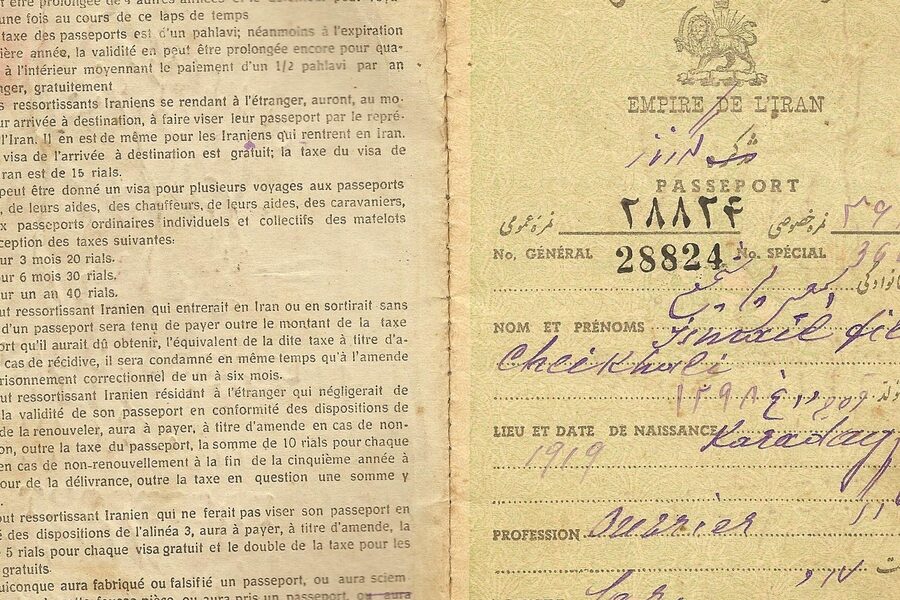 une fois au cours de ce laps de temps
taxe des passeports est d'un pahlavi; néanmoins à l'expiration
ière année, la validité en peut être prolongée encore pour qua-
à l'intérieur moyennant le paiement d'un 1/2 pahlavi par an
nger, gratuitement
s ressortissants Iraniens se rendant à l'étranger, auront, au mo-
ur arrivée à destination, à faire viser leur passeport par le repré-
l'Iran. Il en est de même pour les Iraniens qui rentrent en Iran.
visa de l'arrivée à destination est gratuit; la taxe du visa de
ran est de 15 rials.
peut être donné un visa pour plusieurs voyages aux passeports
, de leurs aides, des chauffeurs, de leurs aides, des caravaniers,
x passeports ordinaires individuels et collectifs des matelots
ception des taxes suivantes:
ur 3 mois 20 rials.
our 6 mois 30 rials.
ur un an 40 rials.
out ressortissant Iranien qui entrerait en Iran ou en sortirait sans
d'un passeport sera tenu de payer outre le montant de la taxe
ort qu'il aurait dû obtenir, l'équivalent de la dite taxe à titre d'a-
cas de récidive, il sera condamné en même temps qu'à l'amende
risonnement correctionnel de un à six mois.
out ressortissant Iranien résidant à l'étranger qui négligerait de
la validité de son passeport en conformité des dispositions de
de la renouveler, aura à payer, à titre d'amende en cas de non-
on, outre la taxe du passeport, la somme de 10 rials pour chaque
en cas de non-renouvellement à la fin de la cinquième année à
our de la délivrance, outre la taxe en question une somme y
out ressortissant Iranien qui ne ferait pas viser son passeport en
é des dispositions de l'alinéa 3, aura à payer, à titre d'amende, la
5 rials pour chaque visa gratuit et le double de la taxe pour les
gratuits.
uiconque aura fabriqué ou falsifié un passeport, ou aura sciem
aura pris un passeport, ou aura
EMPIRE DE L'IRAN
PASSEPORT
نمره عمومی ۲۸۸۲۴ نمره خصوصی
No. GÉNÉRAL 28824 No. SPÉCIAL
NOM ET PRÉNOMS Ismaël
Cheikhali
۱۲۹۸
LIEU ET DATE DE NAISSANCE Karadag
1919
PROFESSION Ouvrier